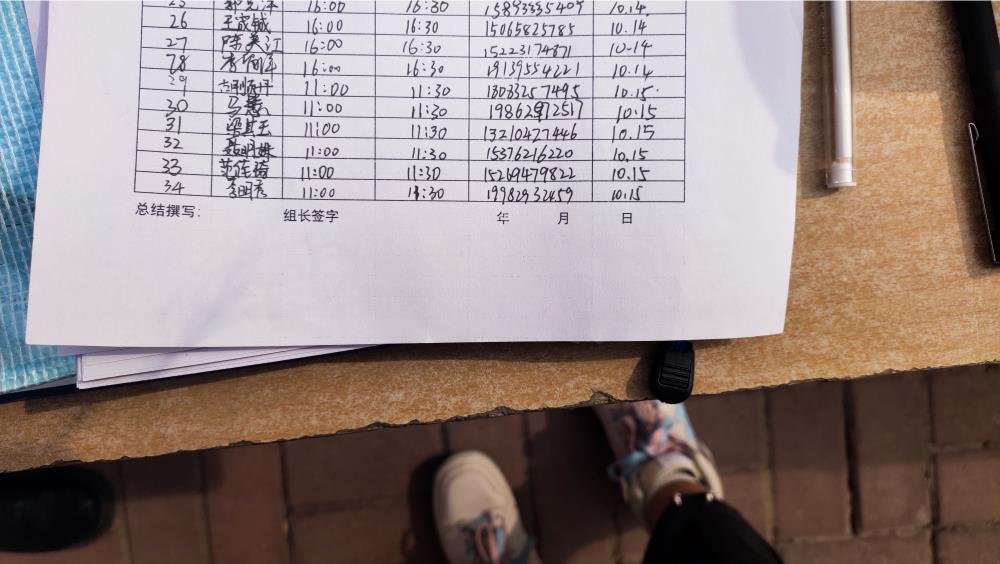 25 16:00 16:30 15893335409 10.14.
26 王成铖 16:00 16:30 15065825785 10.14
27 陈美江 16:00 16:30 15223174871 10-14
78 16:00 16:30 19139554221 10.14
29 11:00 11:30 18083257495 10.15.
30 马慧 11:00 11:30 10.15
31 梁其玉 11:00 11:30 13210427446 10.15
32 聂明姝 11:00 11:30 15376216220 10.15
33 范佳琦 11:00 11:30 15269479822 10.15
34 李明秀 11:00 11:30 19982932459 10.15
总结撰写： 组长签字 年 月 日